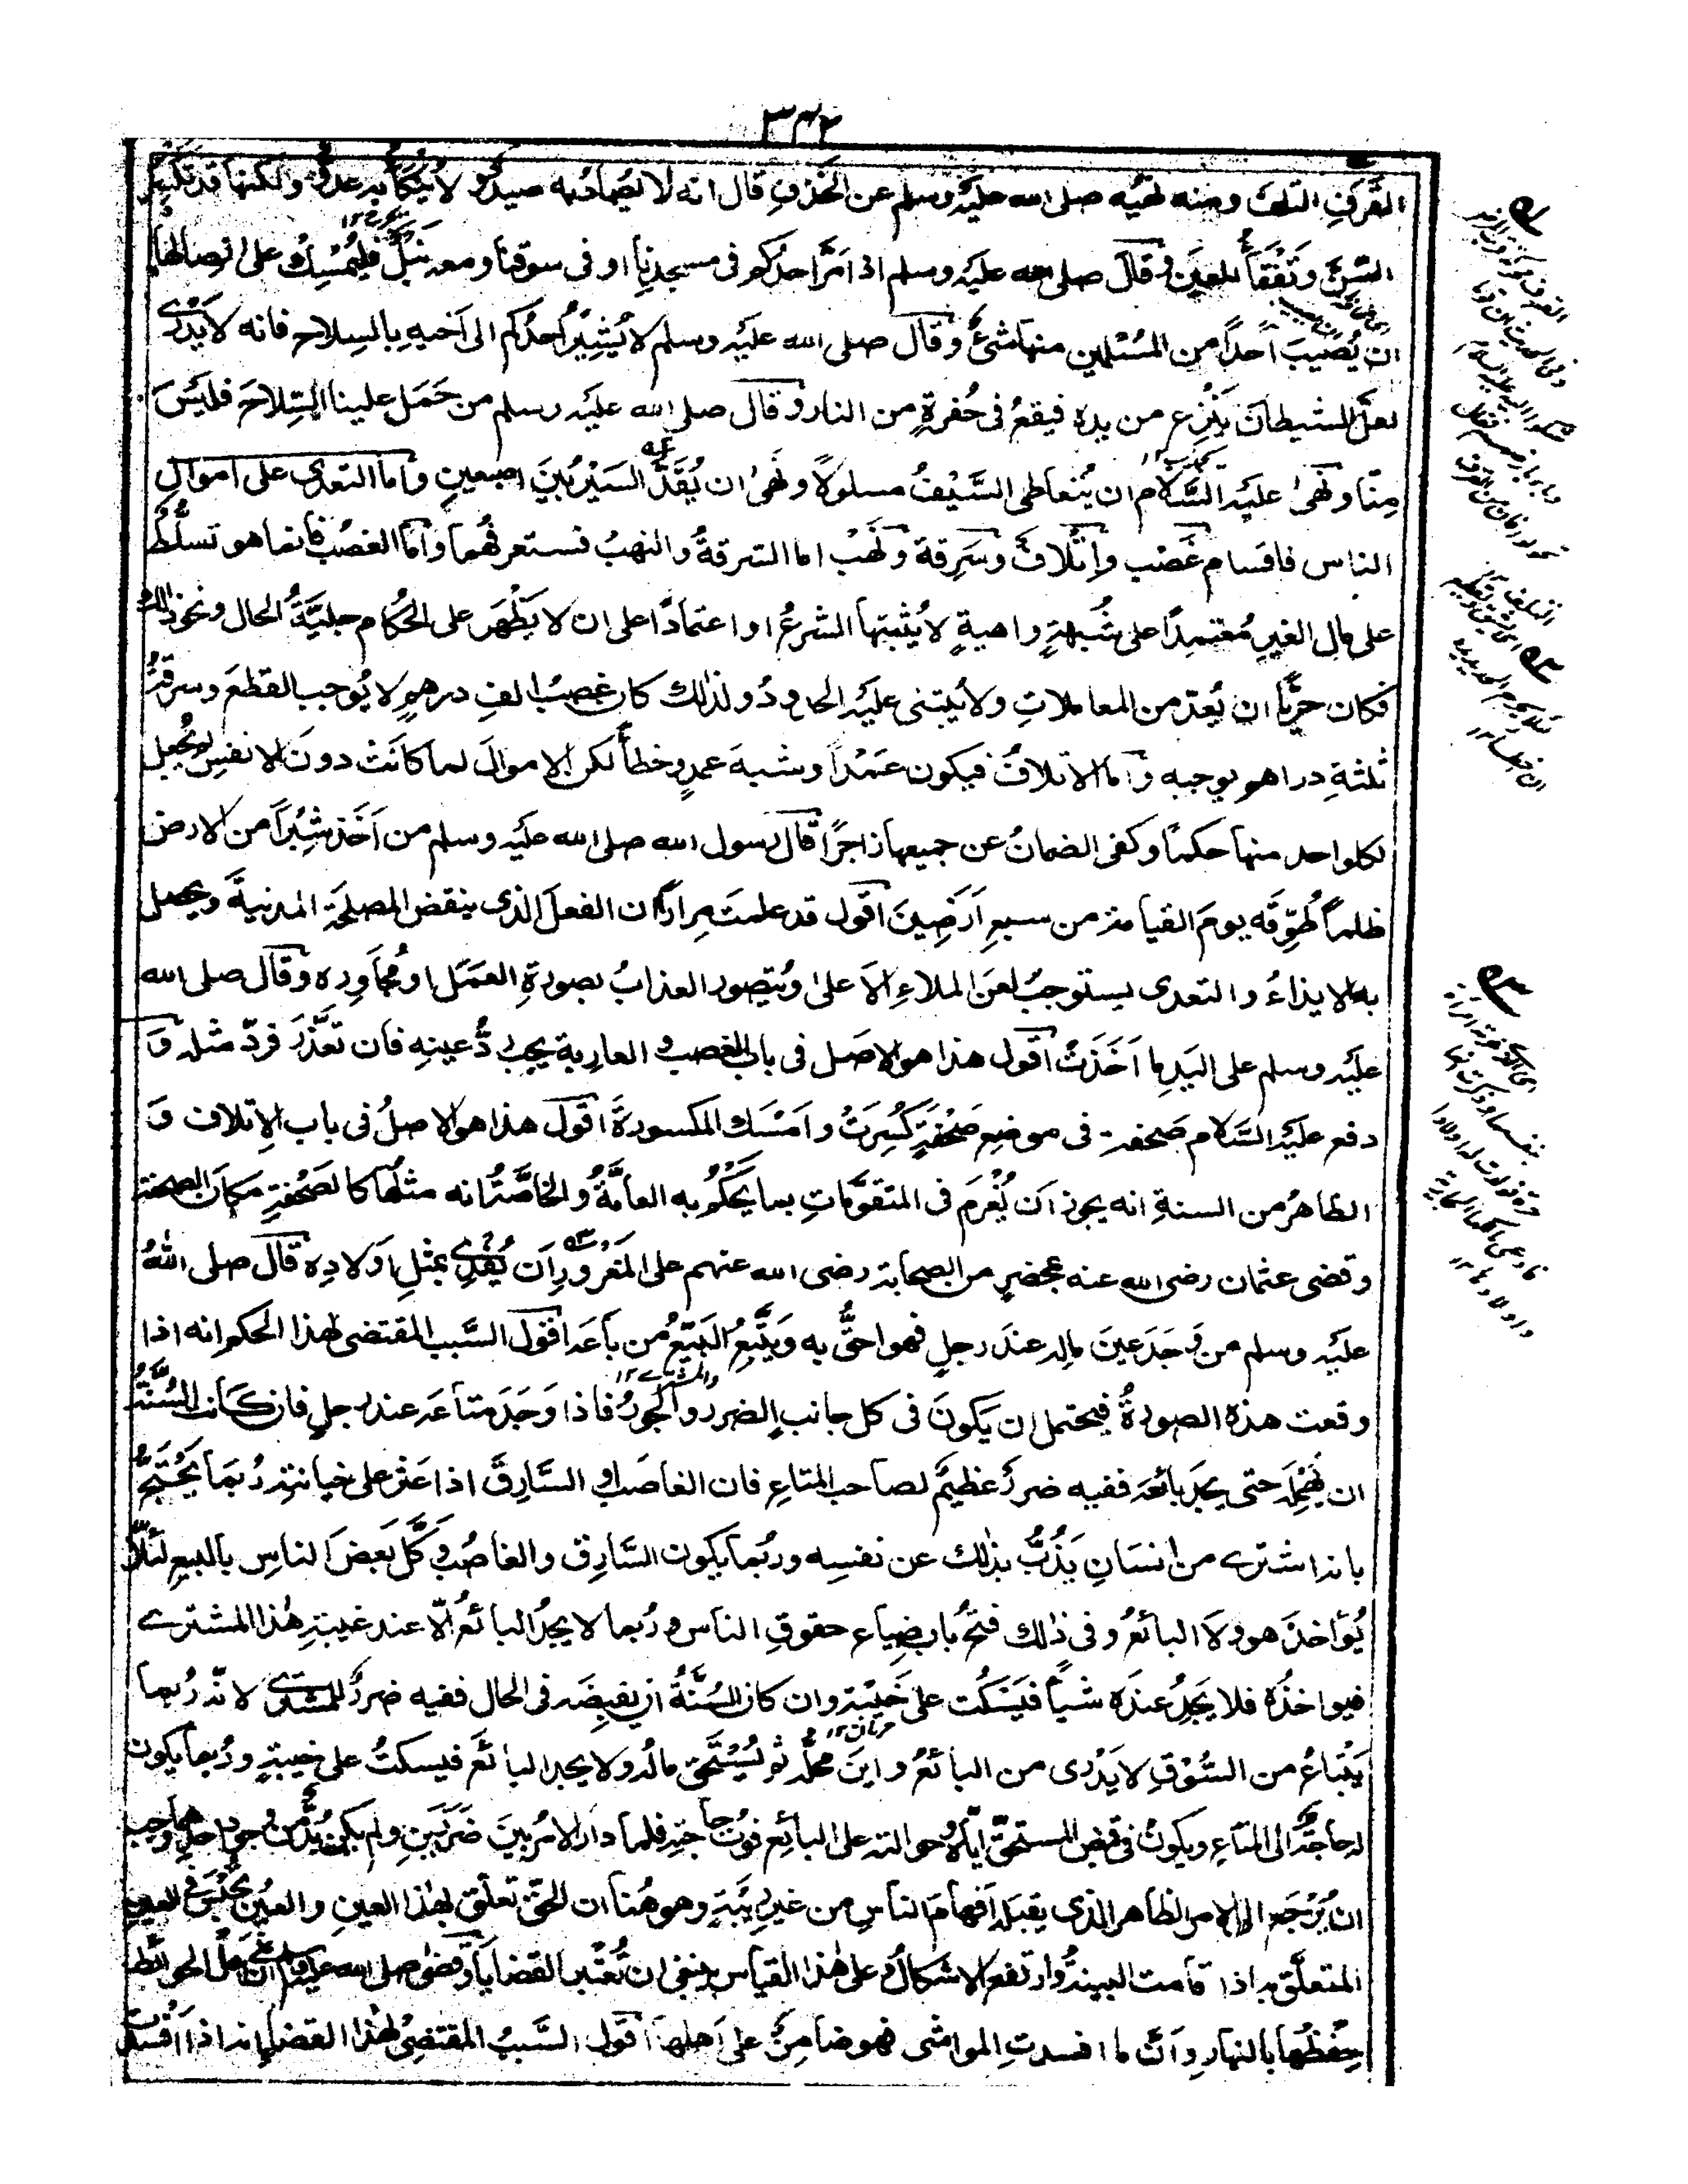 ٣٤٢
القَرَفِ التلفَ ومنه نهيُه صلى الله عليه وسلم عن الخَذْفِ قال انه لا يُصادُ به صيدٌ ولا يُنْكَأُ به عدوٌّ ولكنها قد تَكْسِرُ
السِّنَّ وتَفْقَأُ العينَ وقال صلى الله عليه وسلم اذا مَرَّ احدُكم فى مسجدِنا او فى سوقنا ومعه نَبْلٌ فليُمْسِكْ على نِصالها
ان يُصيبَ احدًا من المُسْلمين منها شئٌ وقال صلى الله عليه وسلم لا يُشيرُ احدُكم الى اخيه بالسِلاح فانه لا يَدْرى
لعلَّ الشيطانَ يَنْزِع من يده فيقعُ فى حُفرةٍ من النار وقال صلى الله عليه وسلم من حَمَل علينا السِّلاحَ فليَسَ
مِنّا ونَهىٰ عليه السَّلام ان يُتعاطى السَّيْفُ مسلولاً ونَهىٰ ان يُقَدَّ السَيْرُ بَيْنَ اصبعينِ واما التعدى على اموالِ
الناس فاقسام غَصْب واِتْلافٌ وسَرِقة ونَهْب اما السَرقةُ والنهبُ فستعرفُهما واَمّا الغصبُ فانما هو تسلُّطٌ
على مال الغيرِ مُعتمِدًا على شُبهةٍ واهيةٍ لا يُثبتها الشرعُ او اعتمادًا على ان لا يَظْهَر على الحُكام جليَّةُ الحال ونحو ذلك
فكان حَرِيًّا ان يُعَدّ من المعاملاتِ ولا يُبتنى عليه الحدودُ ولذلك كان غصبُ الفِ درهمٍ لا يُوجب القطعَ وسرقةُ
ثلثةِ دراهم يوجبه واما الاتلافُ فيكون عَمْدًا وشبهَ عمدٍ وخطأً لكن الاموالَ لما كانَتْ دونَ الانفسِ لم يُجعل
لكل واحد منها حكمًا وكفى الضمانُ عن جميعها زاجرًا قال رسول الله صلى الله عليه وسلم من اَخَذ شِبْرًا من الارض
ظلمًا طُوِّقَه يومَ القيامة من سبعِ اَرَضِينَ اقول قد علمتَ مِرارًا ان الفعلَ الذى ينقض المصلحةَ المدنيةَ ويحصل
به الايذاءُ والتعدى يستوجبُ لعنَ الملاءِ الاَعلىٰ ويُتصور العذابُ بصورةِ العَمَلِ او مُجاوِرِه وقال صلى الله
عليه وسلم على اليَدِ ما اَخَذَتْ اقول هذا هو الاصل فى باب الغصب والعاريةِ يجب ردُّ عينِه فان تعذَّرَ فردّ مثله وَ
دفع عليه السَّلام صَحفةً فى موضعِ صَحْفَةٍ كُسِرَتْ واَمْسَك المكسورةَ اقول هذا هو الاصلُ فى باب الاِتلاف وَ
الظاهرُ من السنةِ انه يجوز اَن يُغْرِمَ فى المتقوَّماتِ بما يَحْكُمُ به العامَّةُ والخاصَّةُ انه مثلُها كالصَحْفةِ مكانَ الصحفة
وقضى عثمان رضى الله عنه بمحضرٍ من الصحابة رضى الله عنهم على المَغْرُورِ اَن يُفْدِىَ بمثلِ اَولادِه قال صلى اللهُ
عليه وسلم من وَجَدَ عينَ مالِه عندَ رجلٍ فهو احقُّ به ويَتَّبِعُ البَيّعُ من باعَه اقول السَّبب المقتضى لهذا الحكم انه اذا
وقعت هذه الصورةُ فيحتمل ان يَكونَ فى كل جانبٍ الضرر والجورُ فاذا وَجَدَ متاعَه عند رجلٍ فان كانت السُّنّةُ
ان يُمْهِلَه حتى يجد بائعَه ففيه ضررٌ عظيمٌ لصاحب المتاعِ فان الغاصبَ او السَّارِقَ اذا عثر على خيانته ربُما يَحْتَجُّ
بانه اشترى من انسَانٍ يَذُبُّ بذلك عن نفسِه وربُما يكون السَّارِق والغاصبُ وكَّل بعضَ الناسِ بالبيع لئلاّ
يُؤاخذَ هو ولا البائعُ وفى ذلك فتحُ بابِ ضِياعِ حقوقِ الناس وربُما لا يجدُ البائعَ الّا عند غَيبةِ هٰذا المشترى
فيواخذُه فلا يَجِدُ عندَه شيأً فيَسْكُت على خَيْبَةٍ وان كان السُّنَّةُ ان يقبِضَه فى الحال ففيه ضررٌ للمشترى لانّه ربُما
يَبْتاعُ من السُّوْقِ لا يَدْرى من البائعُ واينَ محلُّه ثم يُسْتَحَقُّ مالُه ولا يجد البائعَ فيسكتُ على خيبةٍ وربُما يكون
له حاجةٌ الى المتاعِ ويكونُ فى قبض المستحقِّ ايّاه وحوالته على البائعِ فوتُ حاجتِه فلما دار الامرُ بينَ ضَررَينِ ولم يكن بُدٌّ من وجودِ احدِهما وجب
ان يُرْجَعَ الى الامر الظاهر الذى يقبلُه اَفهامُ الناسِ من غيرِ رِيْبَةٍ وهو هُنا ان الحقَّ تعلّق بهٰذا العينِ والعينُ تُحْبَس فى العين
المتعلَّق به اذا قامت البينةُ وارتفع الاشكالُ وعلى هٰذا القياسِ ينبغى ان تُعْتَبر القضايا وقضٰى صلى الله عليه وسلم انّ على اهل الحوائط
حِفْظَها بالنهار واَنَّ ما افسدتِ المواشى فهو ضامِنٌ على اَهلها اقول السَّببُ المقتضِى لهٰذا القضاءِ انه اذا افسدت